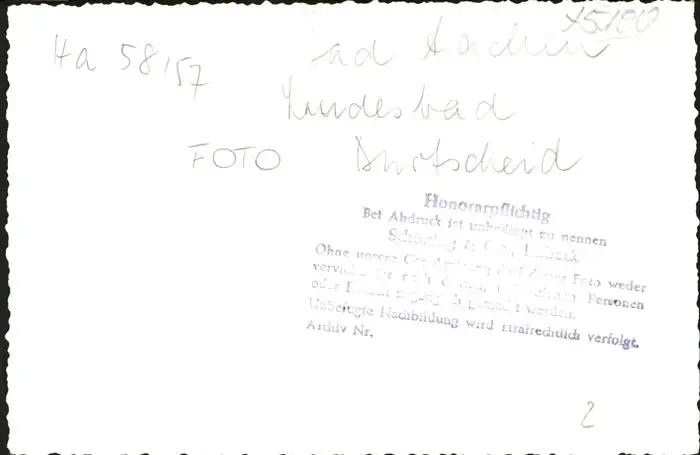 75100
Ha 58/57
Bad Aachen
Landesbad
FOTO Burtscheid
Honorarpflichtig
Bei Abdruck ist unbedingt zu nennen
Schöning & Co., Lübeck
Ohne unsere Genehmigung darf dieses Foto weder
vervielfältigt noch dritten Personen
oder Firmen zugänglich gemacht werden.
Unbefugte Nachbildung wird strafrechtlich verfolgt.
Archiv Nr.
2